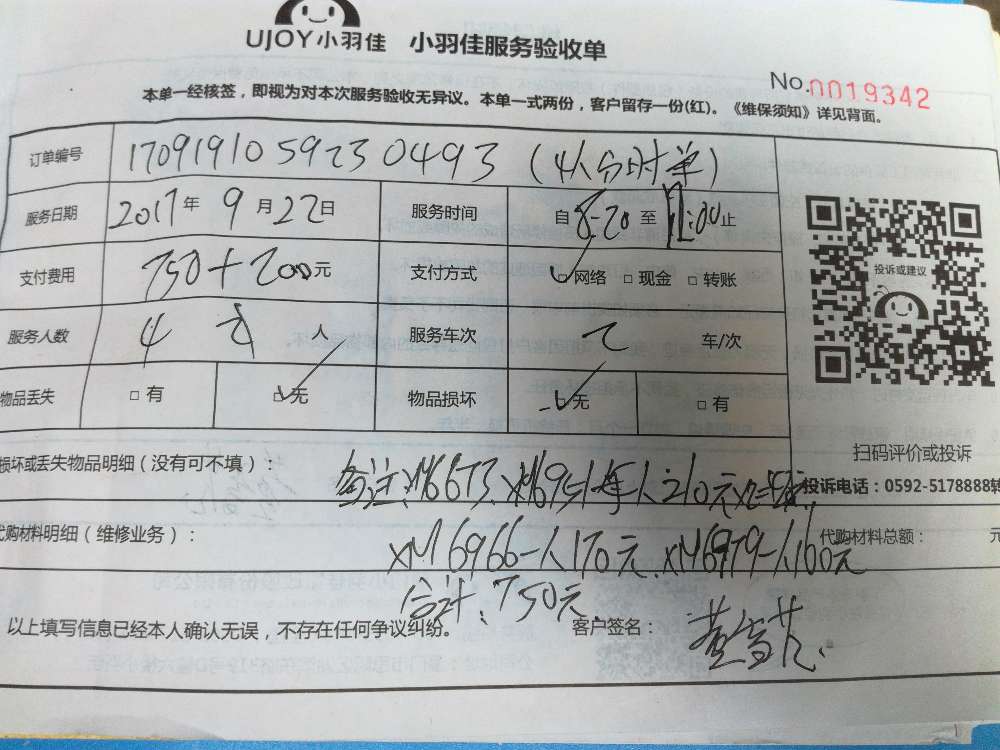 UJOY小羽佳 小羽佳服务验收单
No.0019342
本单一经核签，即视为对本次服务验收无异议。本单一式两份，客户留存一份(红)。《维保须知》详见背面。
订单编号 170919105923 0493 (4人分时单)
服务日期 2017年 9月22日 服务时间 自8-20至 :00止
支付费用 750+200元 支付方式 □网络 □现金 □转账
服务人数 4 人 服务车次 车/次
物品丢失 □有 □无 物品损坏 无 □有
投诉或建议
扫码评价或投诉
投诉电话：0592-5178888转
损坏或丢失物品明细（没有可不填）：
备注：XM6673、XM6951每人210元
代购材料明细（维修业务）： 代购材料总额： 元
XM6966一人170元、XM6979一人160元
合计：750元
以上填写信息已经本人确认无误，不存在任何争议纠纷。 客户签名：